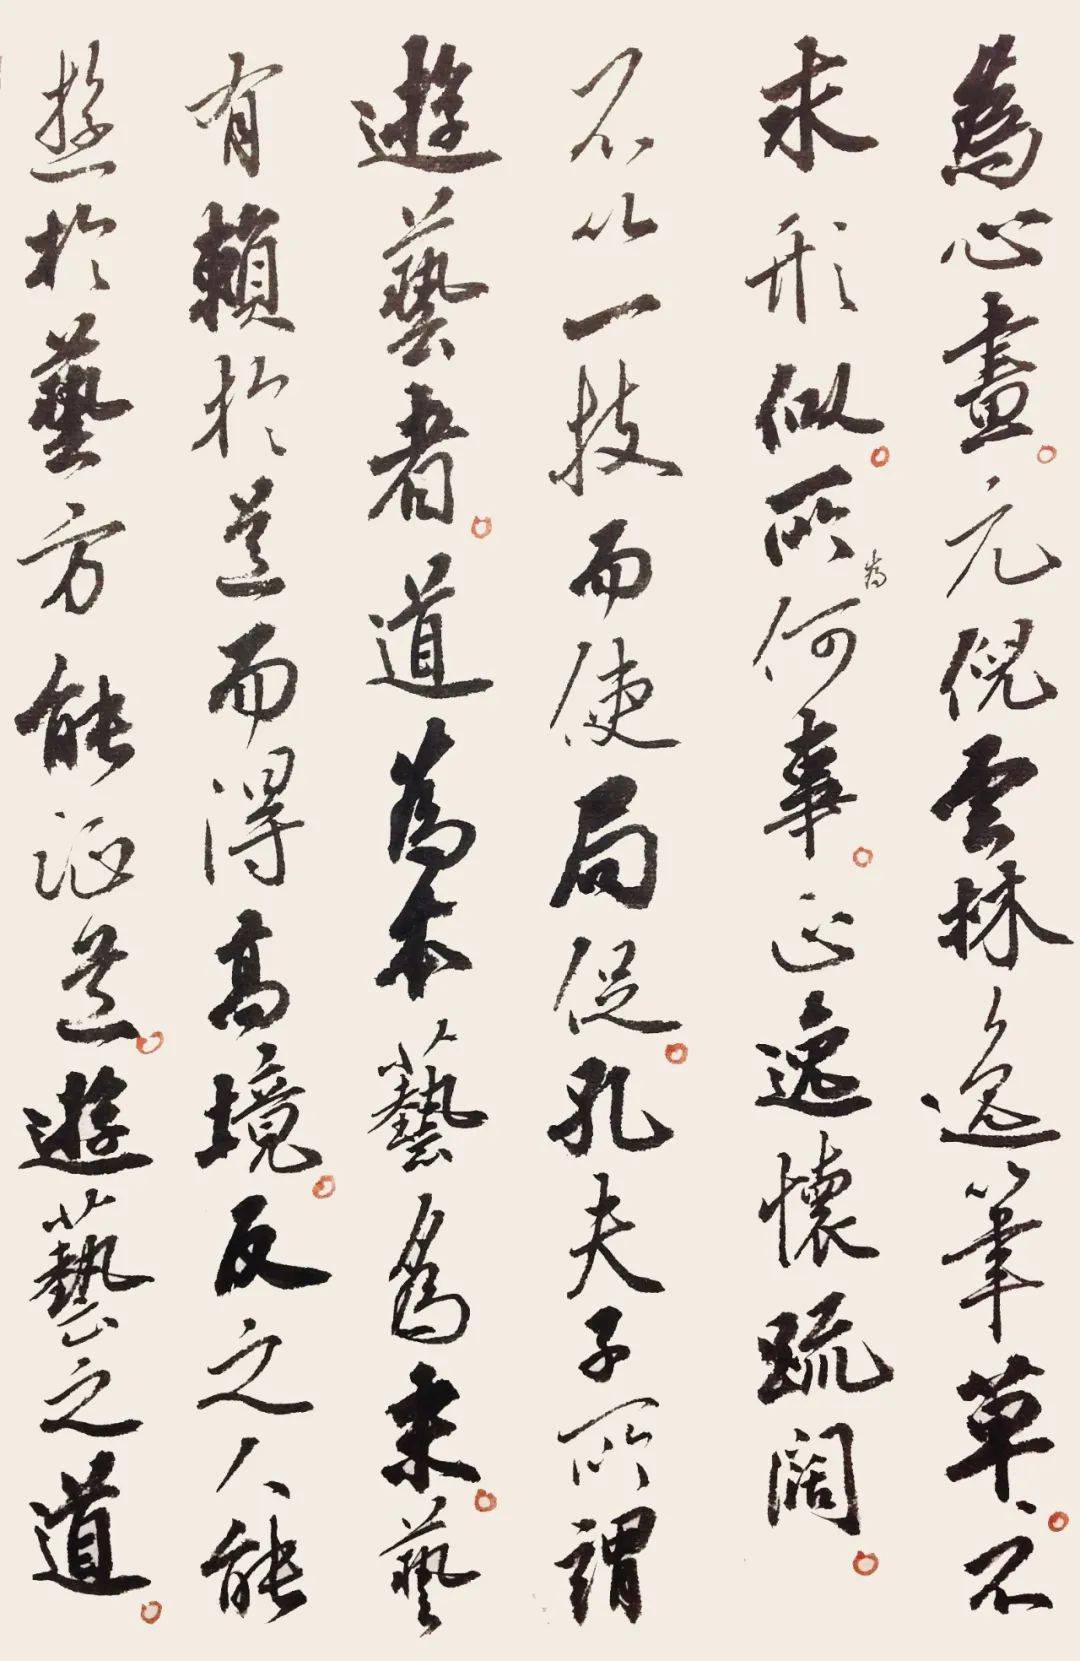 為心畫元倪雲林逸筆草、不
求形似所為何事正逸懷疏闊
不以一技而使局促孔夫子所謂
遊藝者道為本藝為末藝
有賴於道而得高境反之人能
遊於藝方能证道遊藝之道